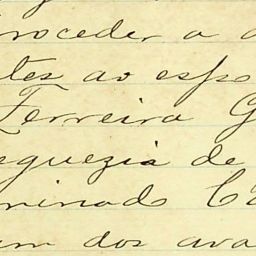 roceder a a
tes ao espo
Ferreira G
eguezia de
minado Ca
um dos ava